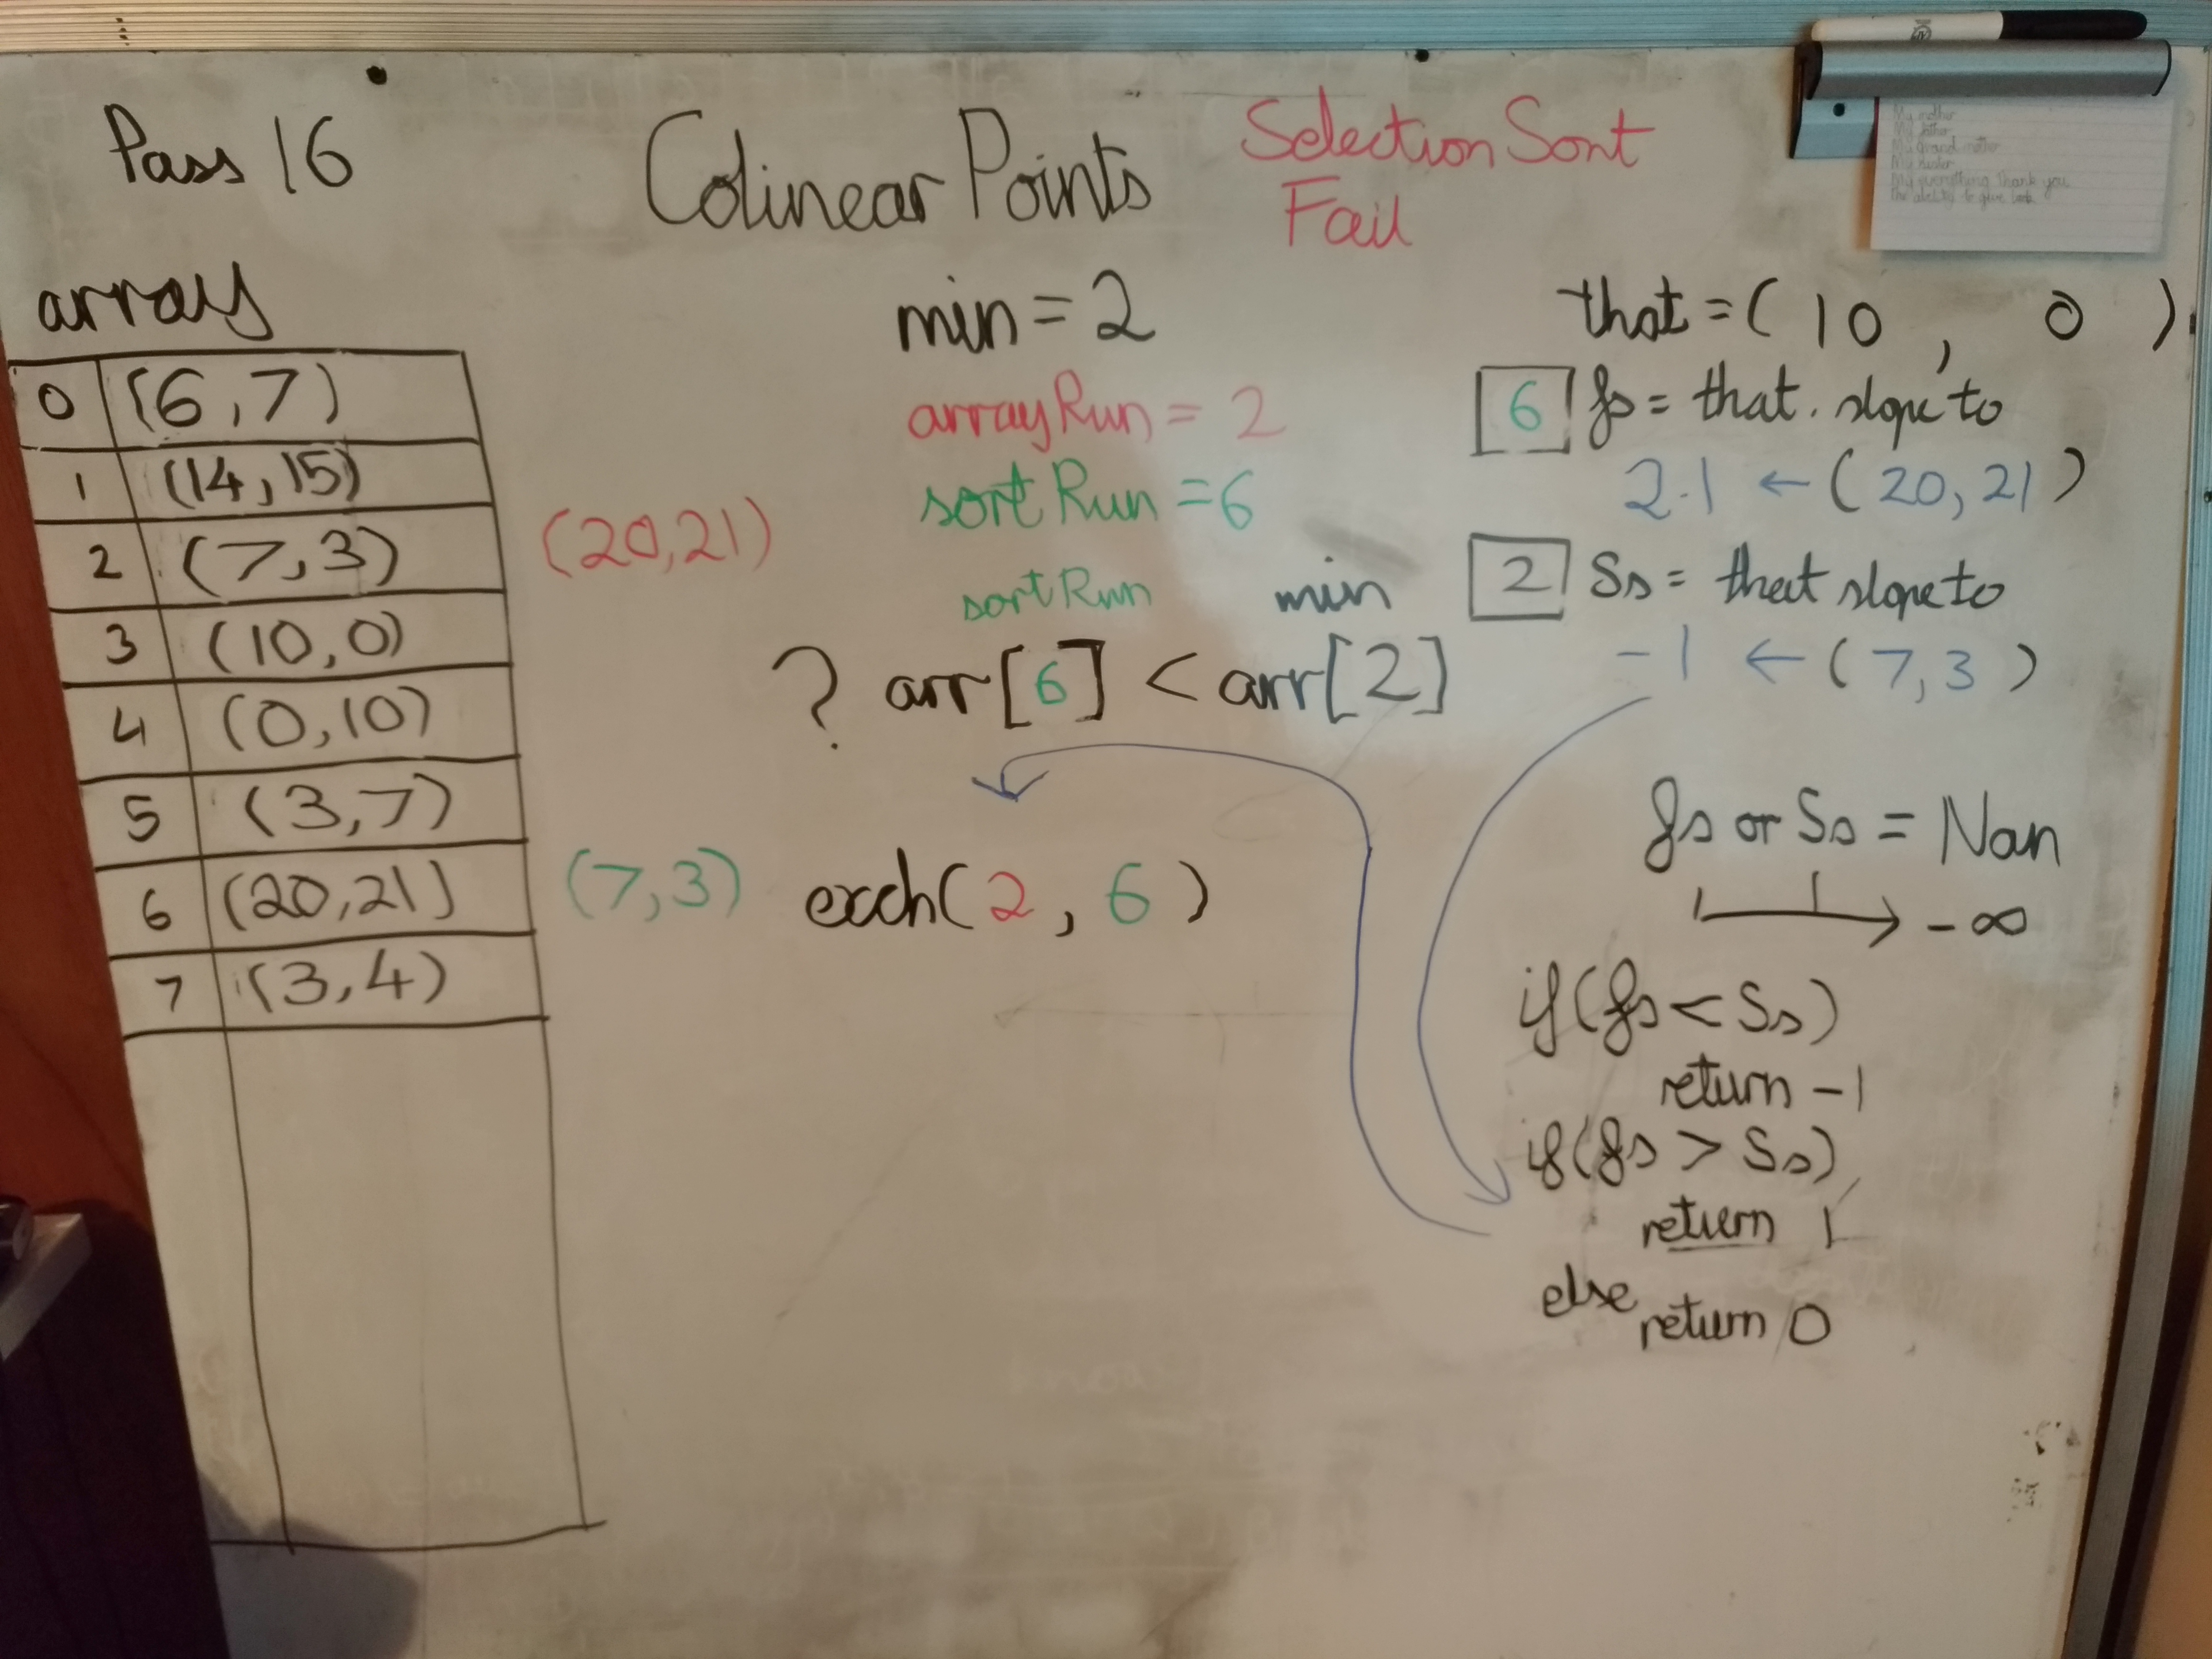 Pass 16
Colinear Points
Selection Sort
Fail
My mother
My father
My Grand mother
My sister
My everything Thank you
The ability to give back
array
0 (6,7)
1 (14,15)
2 (7,3) (20,21)
3 (10,0)
4 (0,10)
5 (3,7)
6 (20,21) (7,3)
7 (3,4)
min = 2
arrayRun = 2
sortRun = 6
sortRun min
? arr[6] < arr[2]
exch(2, 6)
that = (10, 0)
6 fs = that. slope to
2.1 ← (20,21)
2 Ss = that slope to
-1 ← (7,3)
fs or Ss = Nan
→ -∞
if(fs < Ss)
return -1
if(fs > Ss)
return 1
else
return 0